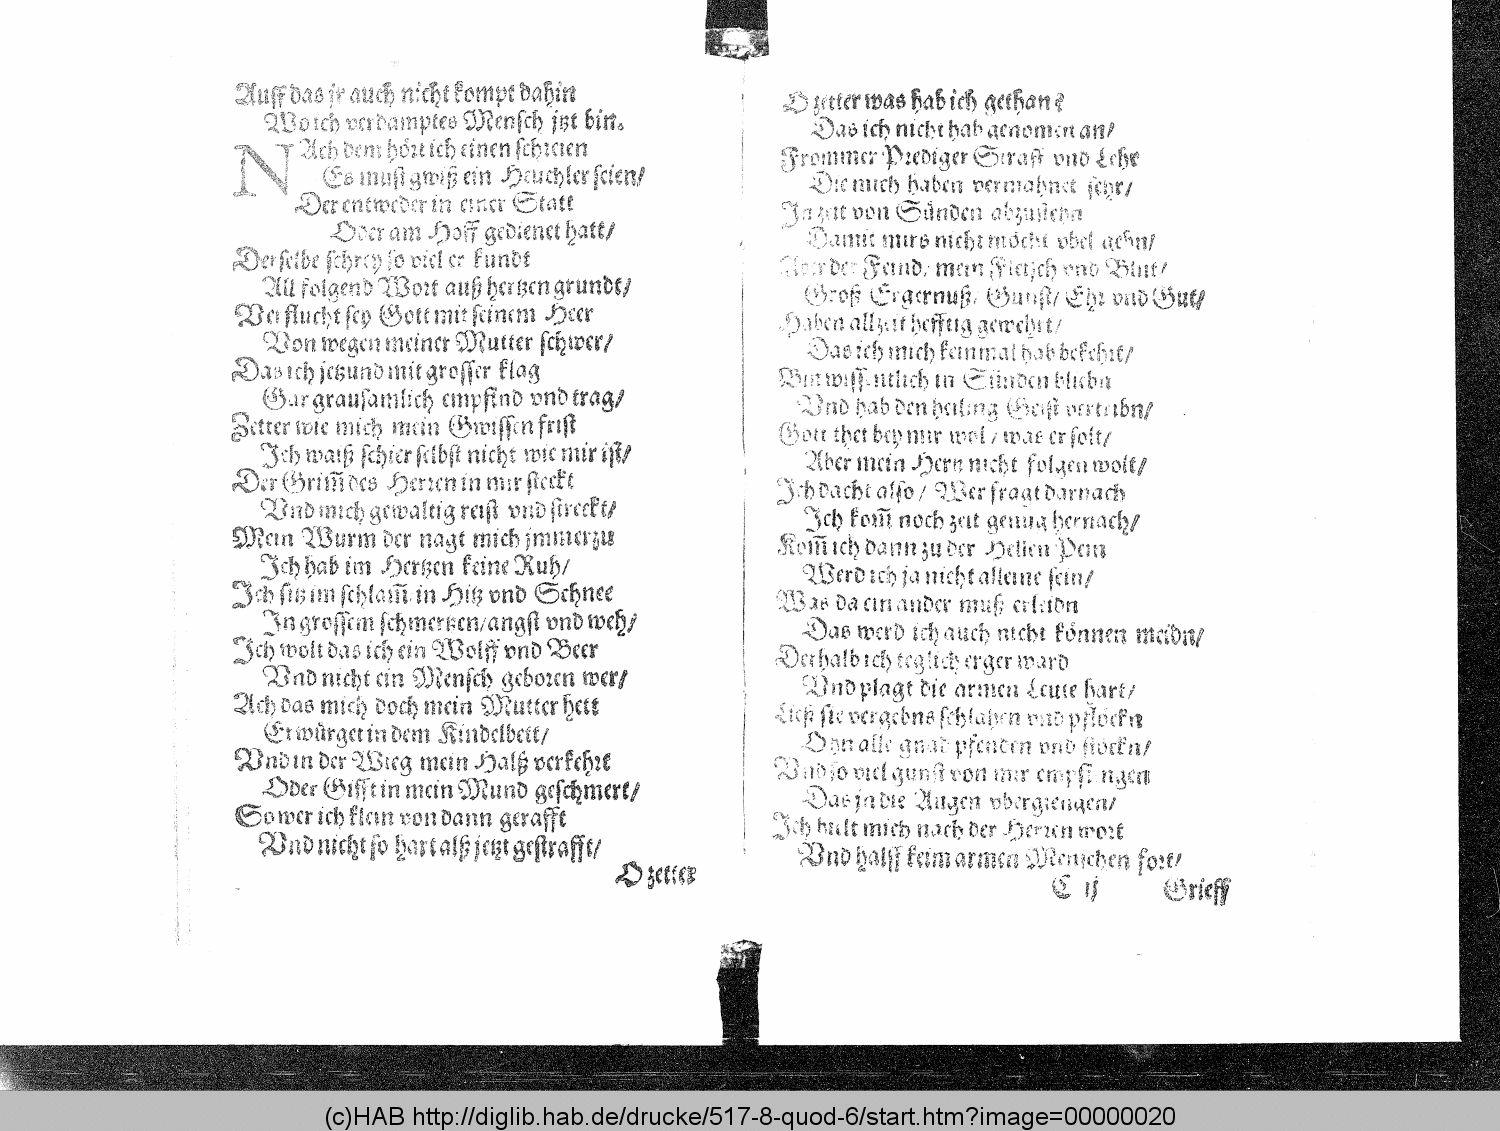 Auff das jr auch nicht kompt dahin
Wo ich verdamptes Mensch jtzt bin.
NAch dem hört ich einen schreien
Es must gwiß ein Heuchler seien/
Der entweder in einer Statt
Oder am Hoff gedienet hatt/
Derselbe schrey so viel er kundt
All folgend Wort auß hertzen grundt/
Verflucht sey Gott mit seinem Heer
Von wegen meiner Mutter schwer/
Das ich jetzund mit grosser klag
Gar grausamlich empfind vnd trag/
Zetter wie mich mein Gwissen frist
Ich waiß schier selbst nicht wie mir ist/
Der Grim̃ des Herren in mir steckt
Vnd mich gewaltig reist vnd streckt/
Mein Wurm der nagt mich jmmerzu
Ich hab im Hertzen keine Ruh/
Ich sitz im schlam̃ in Hitz vnd Schnee
In grossem schmertzen/angst vnd weh/
Ich wolt das ich ein Wolff vnd Beer
Vnd nicht ein Mensch geboren wer/
Ach das mich doch mein Mutter hett
Erwürget in dem Kindelbett/
Vnd in der Wieg mein Halß verkehrt
Oder Gifft in mein Mund geschmert/
So wer ich klein von dann gerafft
Vnd nicht so hart alß jetzt gestrafft/
O zetter
O zetter was hab ich gethan?
Das ich nicht hab genomen an/
Frommer Prediger Straff vnd Lehr
Die mich haben vermahnet sehr/
In zeit von Sünden abzustehn
Damit mirs nicht möcht vbel gehn/
Aber der Feind/ mein Fleisch vnd Blut/
Groß Ergernuß/ Gunst/ Ehr vnd Gut/
Haben allzeit hefftig gewehrt/
Das ich mich keinmal hab bekehrt/
Bin wissentlich in Sünden bliebn
Vnd hab den heiling Geist vertribn/
Gott thet bey mir wol/ was er solt/
Aber mein Hertz nicht folgen wolt/
Ich dacht also/ Wer fragt darnach
Ich kom̃ noch zeit genug hernach/
Kom̃ ich dann zu der Hellen Pein
Werd ich ja nicht alleine sein/
Was da ein ander muß erleidn
Das werd ich auch nicht können meidn/
Derhalb ich teglich erger ward
Vnd plagt die armen Leute hart/
Ließ sie vergebns schlahen vnd pflöckn
Ohn alle gnad pfenden vnd stöckn/
Vnd so viel gunst von mir empfingen
Das ja die Augen vbergiengen/
Ich hielt mich nach der Herren wort
Vnd halff keim armen Menschen fort/
C ij Grieff
(c)HAB http://diglib.hab.de/drucke/517-8-quod-6/start.htm?image=00000020